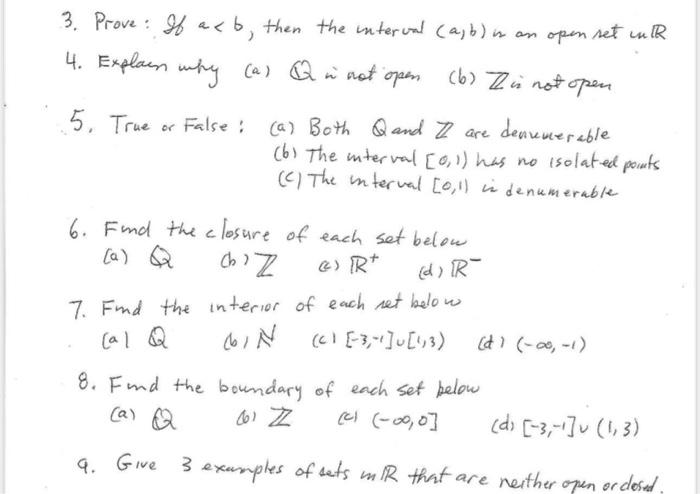 3. Prove: If a < b, then the interval (a,b) is an open set in ℝ
4. Explain why (a) ℚ is not open (b) ℤ is not open
5. True or False: (a) Both ℚ and ℤ are denumerable
(b) The interval [0,1) has no isolated points
(c) The interval [0,1) is denumerable
6. Find the closure of each set below
(a) ℚ (b) ℤ (c) ℝ⁺ (d) ℝ⁻
7. Find the interior of each set below
(a) ℚ (b) ℕ (c) [-3,-1]∪[1,3) (d) (-∞,-1)
8. Find the boundary of each set below
(a) ℚ (b) ℤ (c) (-∞,0] (d) [-3,-1]∪(1,3)
9. Give 3 examples of sets in ℝ that are neither open or closed.